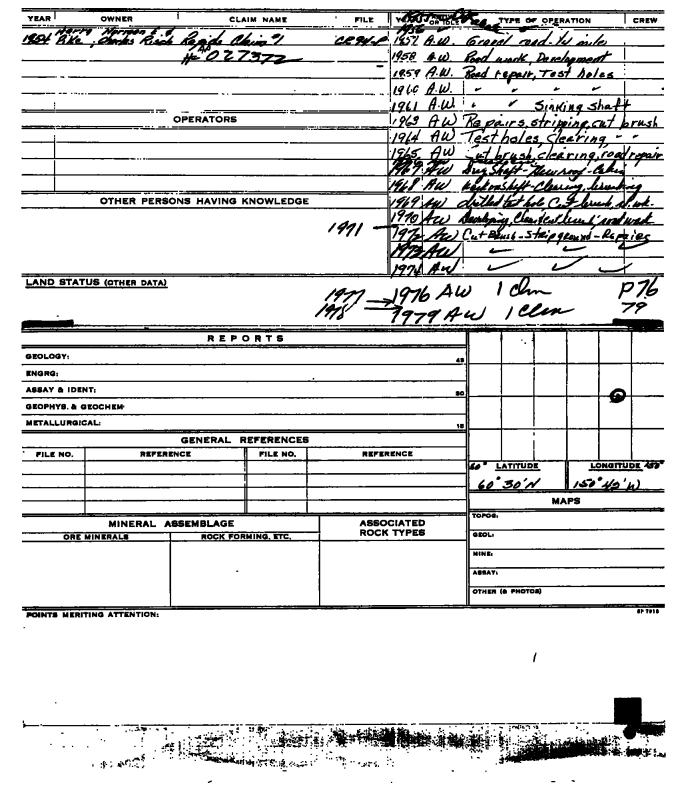 YEAR OWNER CLAIM NAME FILE
1954 Pike, Charles Rich Rapids Claim #1
027372
OPERATORS
OTHER PERSONS HAVING KNOWLEDGE
OR IDLE TYPE OF OPERATION CREW
1957 A.W. road
1958 A.W. Road work, Development
1959 A.W. Road repair, Test holes
1960 A.W. " " "
1961 A.W. " " Sinking shaft
1963 AW Repairs, stripping, cut brush
1964 AW Test holes, clearing, " "
1965 AW Cut brush, clearing, road repair
1967 AW Dug Shaft - New roof - Cabin
1968 AW
1969 AW drilled test hole Cut brush, rd. wk.
1970 AW Developing, road work
1971 —
1972 AW Cut Brush - Strip ground - Repairs
1973 AW ✓ ✓ ✓
1974 AW ✓ ✓ ✓
LAND STATUS (OTHER DATA)
1977 → 1976 AW 1 Clm P76
1978 → 1979 AW 1 Clm 79
REPORTS
GEOLOGY: 45
ENGRG:
ASSAY & IDENT: 30
GEOPHYS. & GEOCHEM
METALLURGICAL: 15
GENERAL REFERENCES
FILE NO. REFERENCE FILE NO. REFERENCE
60° LATITUDE LONGITUDE 150°
60° 30' N 150° 42' W
MAPS
TOPOG:
GEOL:
MINE:
ASSAY:
OTHER (& PHOTOS)
MINERAL ASSEMBLAGE ASSOCIATED ROCK TYPES
ORE MINERALS ROCK FORMING, ETC.
POINTS MERITING ATTENTION: